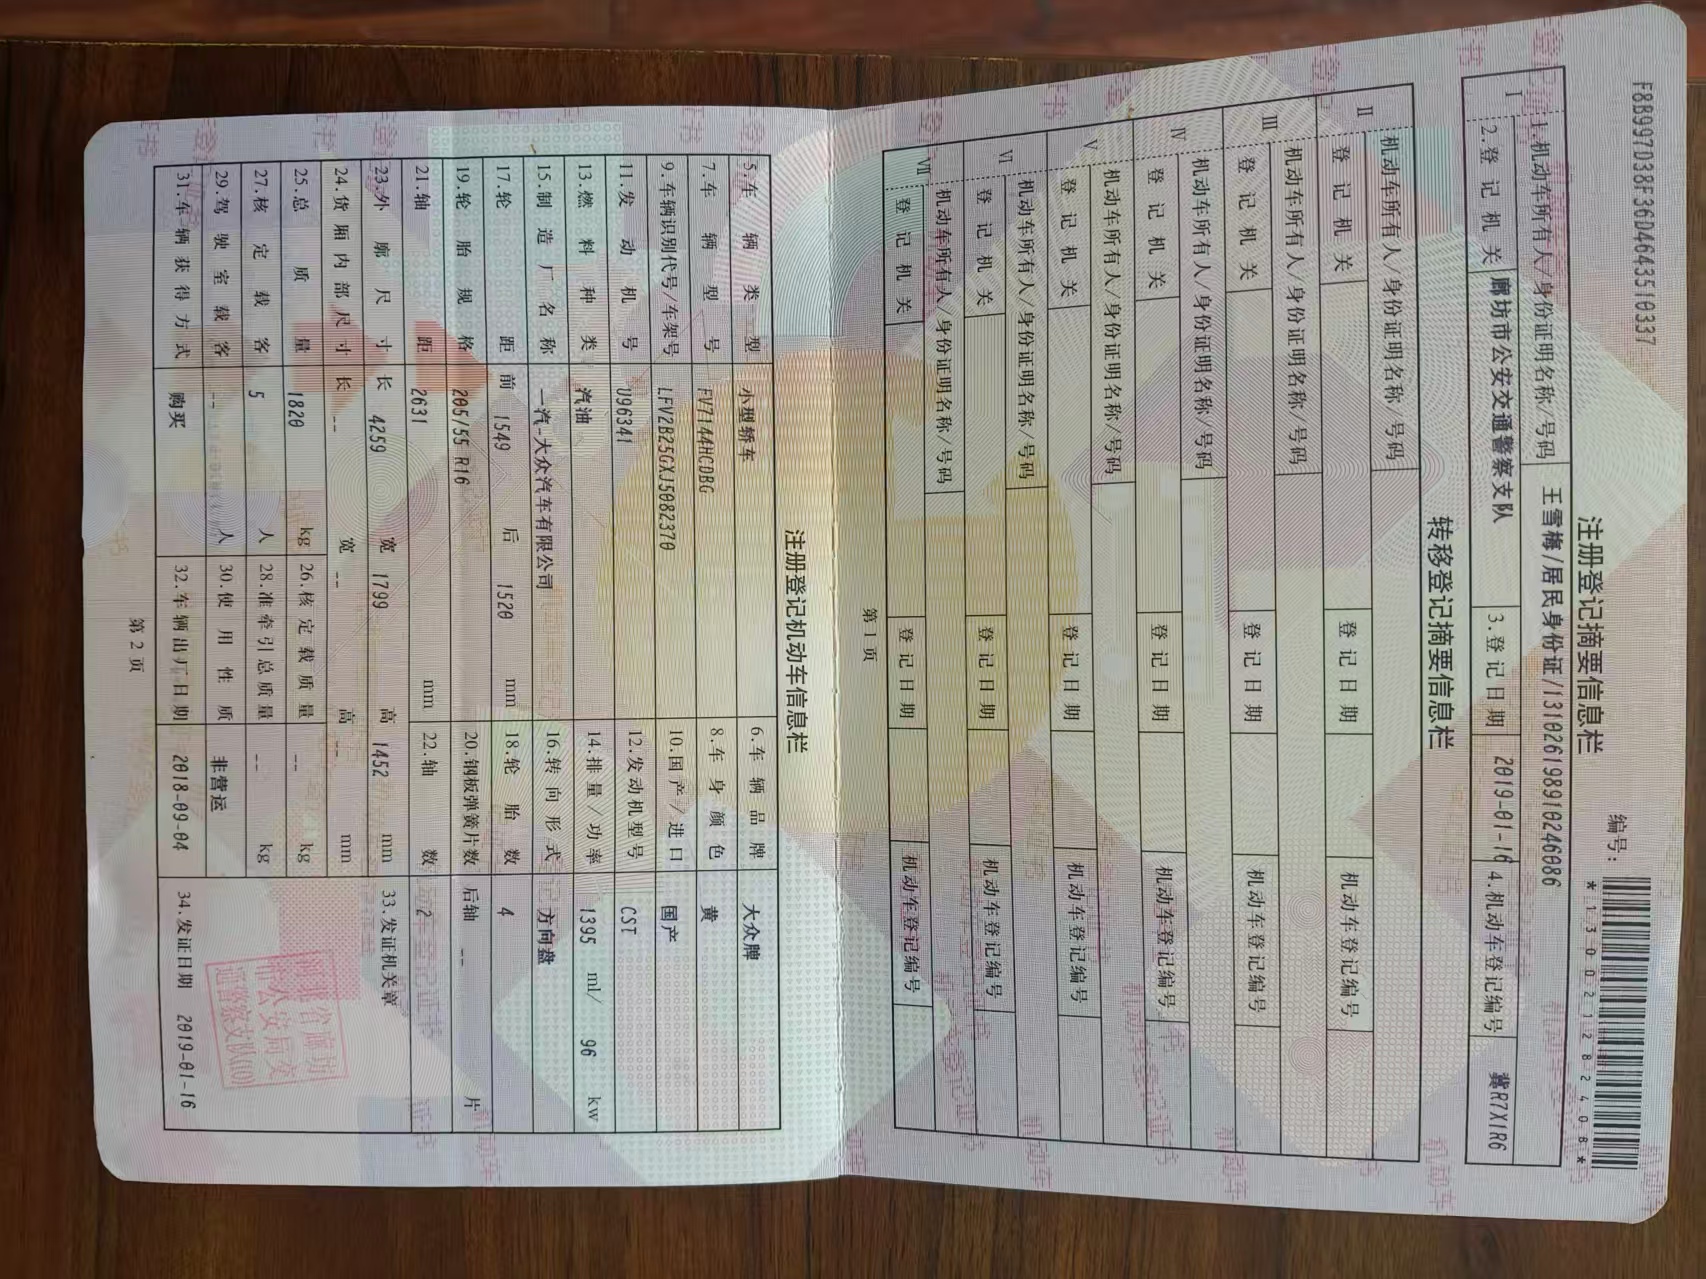 F8B997D38F36D46435​10337
编号:
*130021282408*
注册登记摘要信息栏
Ⅰ 1.机动车所有人/身份证明名称/号码 王雪梅/居民身份证/131026198910246086
2.登记机关 廊坊市公安交通警察支队 3.登记日期 2019-01-16 4.机动车登记编号 冀R7X1R6
转移登记摘要信息栏
Ⅱ 机动车所有人/身份证明名称/号码
登记机关 登记日期 机动车登记编号
Ⅲ 机动车所有人/身份证明名称/号码
登记机关 登记日期 机动车登记编号
Ⅳ 机动车所有人/身份证明名称/号码
登记机关 登记日期 机动车登记编号
Ⅴ 机动车所有人/身份证明名称/号码
登记机关 登记日期 机动车登记编号
Ⅵ 机动车所有人/身份证明名称/号码
登记机关 登记日期 机动车登记编号
Ⅶ 机动车所有人/身份证明名称/号码
登记机关 登记日期 机动车登记编号
第1页
注册登记机动车信息栏
5.车辆类型 小型轿车 6.车辆品牌 大众牌
7.车辆型号 FV7144HCDBG 8.车身颜色 黄
9.车辆识别代号/车架号 LFV2B25GXJ5082370 10.国产/进口 国产
11.发动机号 U96341 12.发动机型号 CST
13.燃料种类 汽油 14.排量/功率 1395 ml/ 96 kw
15.制造厂名称 一汽-大众汽车有限公司 16.转向形式 方向盘
17.轮距 前 1549 后 1520 mm 18.轮胎数 4
19.轮胎规格 205/55 R16 20.钢板弹簧片数 后轴 -- 片
21.轴距 2631 mm 22.轴数 2
23.外廓尺寸 长 4259 宽 1799 高 1452 mm 33.发证机关章
24.货厢内部尺寸 长 -- 宽 -- 高 -- mm
25.总质量 1820 kg 26.核定载质量 -- kg
27.核定载客 5 人 28.准牵引总质量 -- kg
29.驾驶室载客 -- 人 30.使用性质 非营运
31.车辆获得方式 购买 32.车辆出厂日期 2018-09-04 34.发证日期 2019-01-16
河北省廊坊
市公安局交
通警察支队(10)
第2页